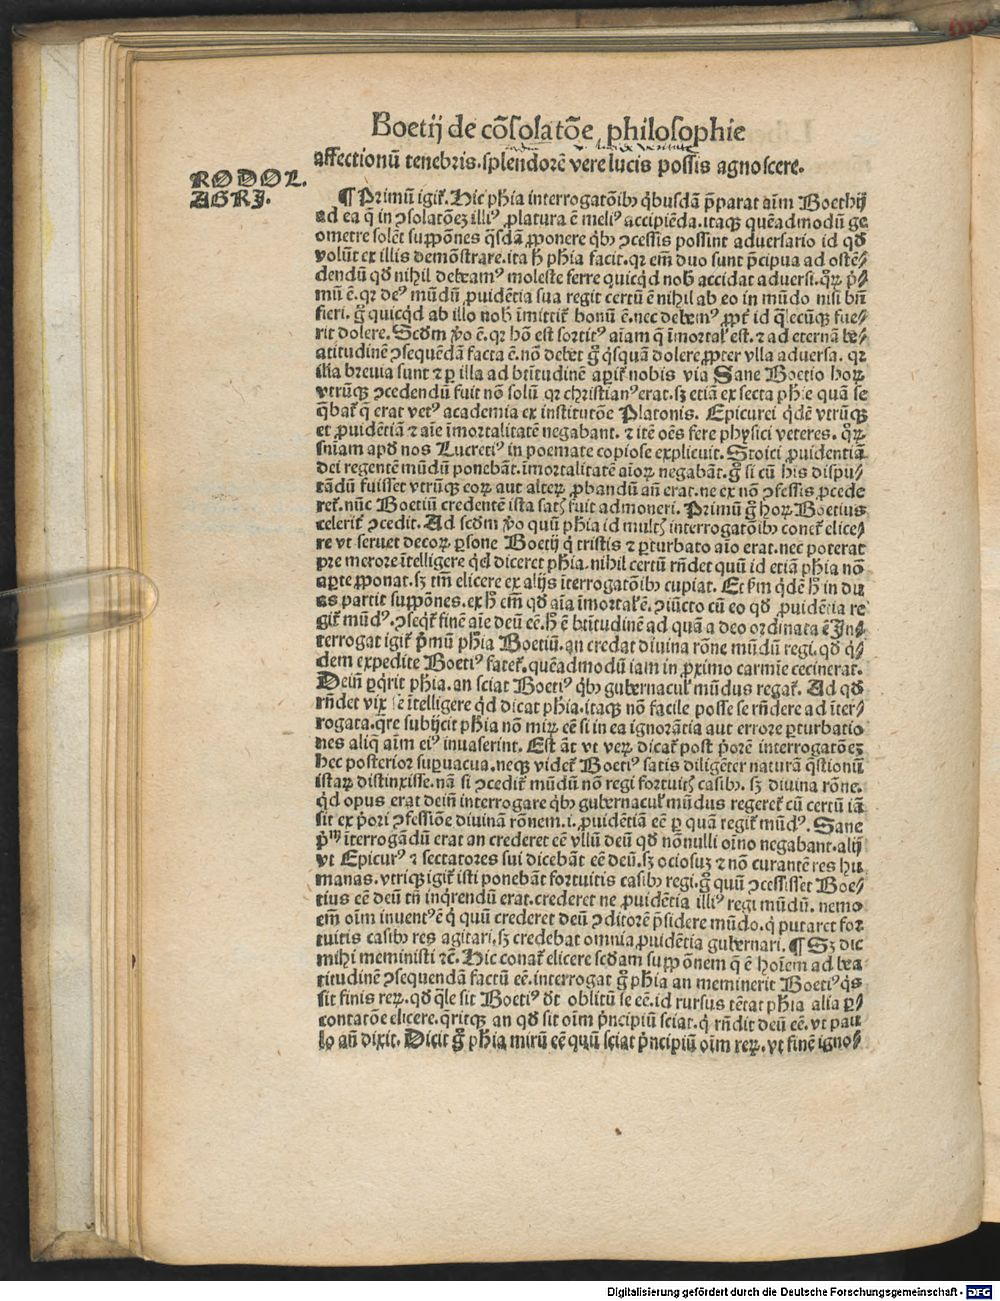 Boetij de cõsolatõe philosophie
affectionũ tenebris. splendorẽ vere lucis possis agnoscere.
RODOL.
AGRI.
¶ Primũ igiť. Hic phĩa interrogatõibꝰ q̃busdã p̃parat aĩm Boethij
ad ea q̃ in ↄsolatõeꝫ illiꝰ ꝓlatura ẽ meliꝰ accipiẽda. itaqꝫ quẽadmodũ ge
ometre solẽt suppõnes q̃sdã ꝓponere q̃bꝰ ↄcessis possint adversario id qđ
volũt ex illis demõstrare. ita ħ phĩa facit. qꝛ em̃ duo sunt p̃cipua ad ostẽ⸗
dendũ qđ nihil debeamꝰ moleste ferre quicq̃d nob̃ accidat adversi. q̃ꝝ p̃⸗
mũ ẽ. qꝛ deꝰ mũdũ ꝓuidẽtia sua regit certũ ẽ nihil ab eo in mũdo nisi bñ
fieri. g̃ quicq̃d ab illo nob̃ ĩmittiť bonũ ẽ. nec debemꝰ ꝓpť id q̃lecũqꝫ fue⸗
rit dolere. Scđm ꝟo ẽ. qꝛ hõ est sortitꝰ aĩam q̃ ĩmortaľ est. ⁊ ad eternã be⸗
atitudinẽ ↄsequẽdã facta ẽ. nõ debet g̃ q̃squã dolere ꝓpter vlla adversa. qꝛ
illa brevia sunt ⁊ ꝑ illa ad bt̃itudinẽ aꝑiť nobis via Sane Boetio hoꝝ
vtrũqꝫ ↄcedendũ fuit nõ solũ qꝛ christianꝰ erat. sꝫ etiã ex secta phĩe quã se
q̃baľ q̃ erat vetꝰ academia ex institutõe Platonis. Epicurei q̃dẽ vtrũqꝫ
et ꝓuidẽtiã ⁊ aĩe ĩmortalitatẽ negabant. ⁊ itẽ oẽs fere physici veteres. q̃ꝝ
sñiam apđ nos Lucretiꝰ in poemate copiose explicuit. Stoici ꝓuidentiã
dei regentẽ mũdũ ponebãt. ĩmortalitatẽ aĩoꝝ negabãt. g̃ si cũ his dispu⸗
tãdũ fuisset vtrũqꝫ eoꝝ aut alteꝝ ꝓbandũ añ erat. ne ex nõ ↄfessis ꝓcede
reť. nũc Boetiũ credentẽ ista satꝭ fuit admoneri. Primũ g̃ hoꝝ Boetius
celeriť ↄcedit. Ad scđm ꝟo quũ phĩa id multꝭ interrogatõibꝰ coneť elice⸗
re vt servet decoꝝ ꝑsone Boetij q̃ tristis ⁊ ꝑturbato aĩo erat. nec poterat
pre merore ĩtelligere q̃d diceret phĩa. nihil certũ rñdet quũ id etiã phĩa nõ
aꝑte ꝓponat. sꝫ tm̃ elicere ex alijs ĩterrogatõibꝰ cupiat. Et q̃dẽ ħ in du
as partit suppõnes. ex ħ em̃ qđ aĩa ĩmortaľ ẽ. ↄiũcto cũ eo qđ ꝓuidẽtia re
giť mũdꝰ. ↄseq̃ť finẽ aĩe deũ eẽ. ħ ẽ bt̃itudinẽ ad quã a deo ordinata ẽ In⸗
terrogat igiť p̃mũ phĩa Boetiũ. an credat divina rõne mũdũ regi. qđ q̃⸗
dem expedite Boetiꝰ fateť. quẽadmodũ iam in ꝓximo carmĩe cecinerat.
Dein̄ ꝑq̃rit phĩa. an sciat Boetiꝰ q̃bꝰ gubernacuľ mũdus regať. Ad qđ
rñdet vix se ĩtelligere q̃d dicat phĩa. itaqꝫ nõ facile posse se rñdere ad ĩter⸗
rogata. q̃re subijcit phĩa nõ miꝝ eẽ si in ea ignorãtia aut errore ꝑturbatio
nes aliq̃ aĩm eiꝰ invaserint. Est ãt vt veꝝ dicať post p̃orẽ interrogatõeꝫ
hec posterior suꝑuacua. neqꝫ videť Boetiꝰ satis diligẽter naturã q̃stionũ
istaꝝ distinxisse. nã si ↄcediť mũdũ nõ regi fortuitꝭ casibꝰ. sꝫ divina rõne.
q̃d opus erat dein̄ interrogare q̃bꝰ gubernacuľ mũdus regereť cũ certũ iã
sit ex p̃ori ↄfessiõe divinã rõnem .i. ꝓuidẽtiã eẽ ꝑ quã regiť mũdꝰ. Sane
p̃ꝰ ĩterrogãdũ erat an crederet eẽ vllũ deũ qđ nõnulli oĩno negabant. alij
vt Epicurꝰ ⁊ sectatores sui dicebãt eẽ deũ. sꝫ ociosuꝫ ⁊ nõ curantẽ res hu
manas. vtriqꝫ igiť isti ponebãt fortuitis casibꝰ regi. g̃ quũ ↄcessisset Boe⸗
tius eẽ deũ tñ inq̃rendũ erat. crederet ne ꝓuidẽtia illiꝰ regi mũdũ. nemo
em̃ oĩm inventꝰ ẽ q̃ quũ crederet deũ ↄditorẽ p̃sidere mũdo. q̃ putaret for
tuitis casibꝰ res agitari. sꝫ credebat omnia ꝓuidẽtia gubernari. ¶ Sꝫ dic
mihi meministi ⁊c̃. Hic conať elicere scđam suppõnem q̃ ẽ hoĩem ad bea
titudinẽ ↄsequendã factũ eẽ. interrogat g̃ phĩa an meminerit Boetiꝰ q̃s
sit finis reꝝ. qđ q̃le sit Boetiꝰ đt oblitũ se eẽ. id rursus tẽtat phĩa alia ꝑ⸗
contatõe elicere. q̃ritqꝫ an qđ sit oĩm p̃ncipiũ sciat. q̃ rñdit deũ eẽ. vt pau
lo añ dixit. Dicit g̃ phĩa mirũ eẽ quũ sciat p̃ncipiũ oĩm reꝝ. vt finẽ igno⸗
Digitalisierung gefördert durch die Deutsche Forschungsgemeinschaft - DFG